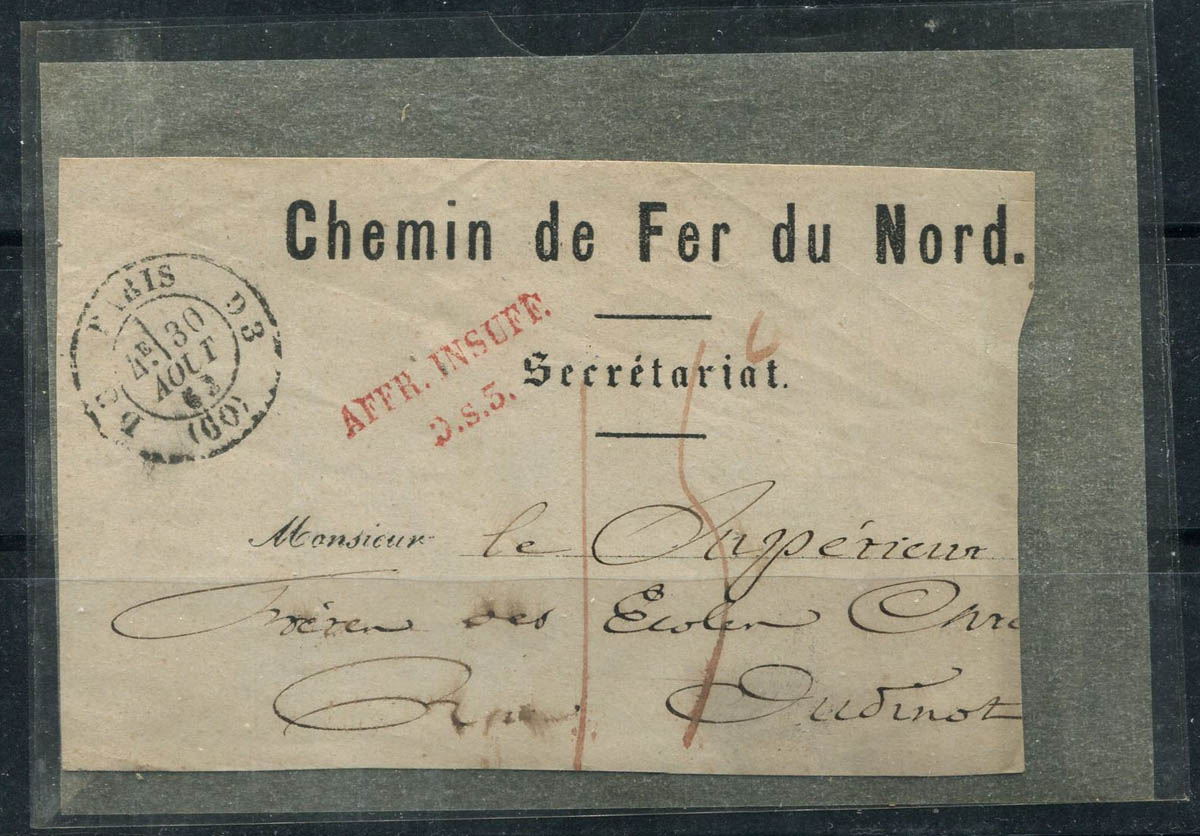 Chemin de Fer du Nord.
PARIS D3
4E 30
AOUT
63
(60)
AFFR. INSUFF.
D.s.3.
Secrétariat.
15 c
Monsieur le Supérieur
Frères des Ecoles Chre
Rue Oudinot